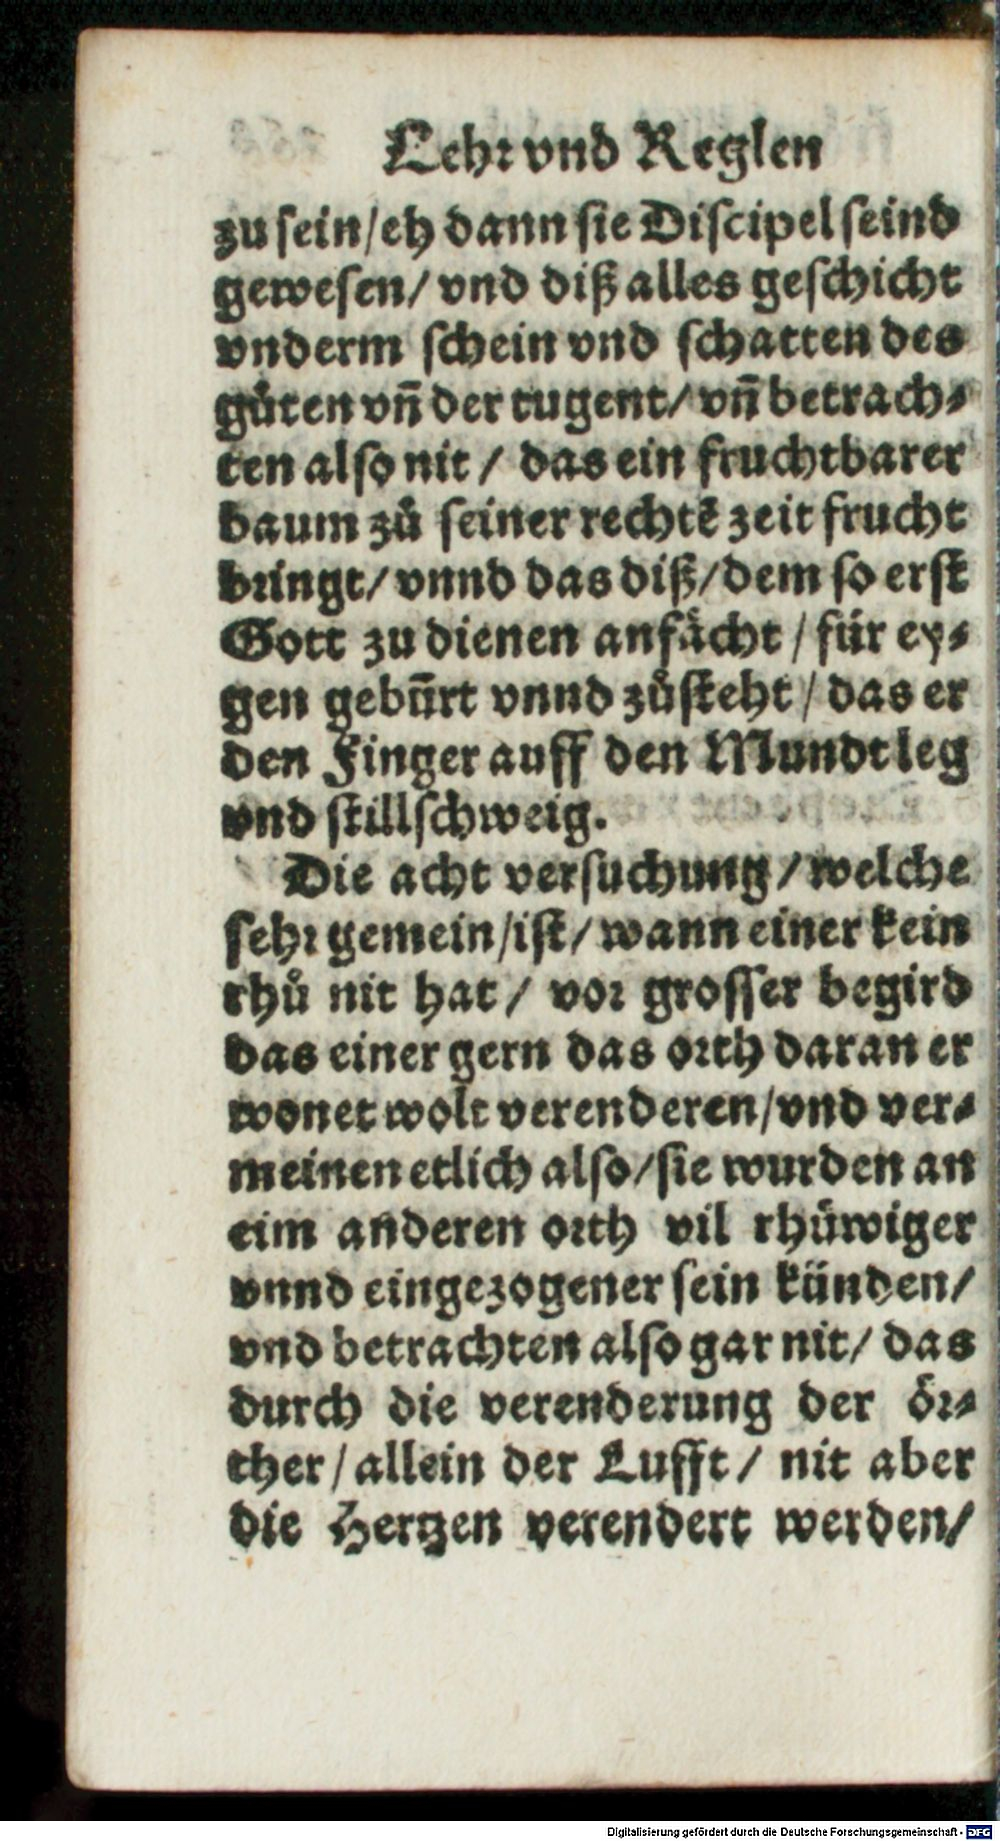 Lehr vnd Reglen
zu sein/eh dann sie Discipel seind
gewesen/ vnd diß alles geschicht
vnderm schein vnd schatten des
gůten vñ der tugent/ vñ betrach⸗
ten also nit / das ein fruchtbarer
baum zů seiner rechtẽ zeit frucht
bringt/ vnnd das diß/dem so erst
Gott zu dienen anfächt / für ey⸗
gen gebūrt vnnd zůsteht / das er
den Finger auff den Mundt leg
vnd stillschweig.
Die acht versuchung / welche
sehr gemein/ist/ wann einer kein
rhů nit hat / vor grosser begird
das einer gern das orth daran er
wonet wolt verenderen/vnd ver⸗
meinen etlich also/sie wurden an
eim anderen orth vil rhüwiger
vnnd eingezogener sein künden/
vnd betrachten also gar nit/ das
durch die verenderung der ör⸗
ther / allein der Lufft / nit aber
die Hertzen verendert werden/
Digitalisierung gefördert durch die Deutsche Forschungsgemeinschaft - DFG